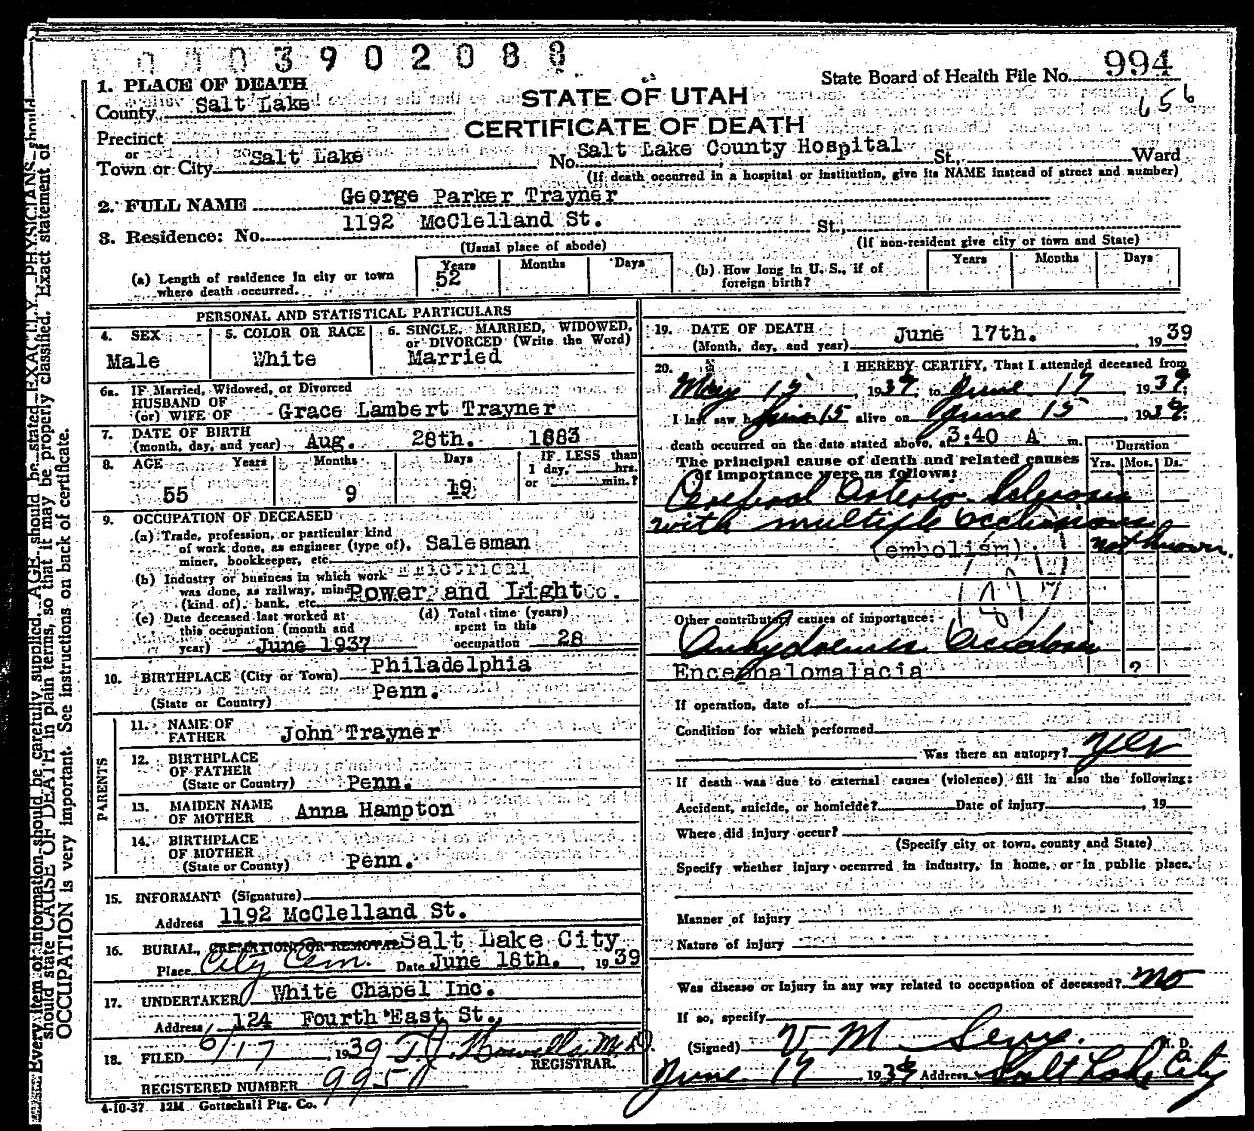 0103902088
State Board of Health File No. 994
656
1. PLACE OF DEATH
County Salt Lake
STATE OF UTAH
CERTIFICATE OF DEATH
Precinct
or
Town or City Salt Lake No. Salt Lake County Hospital St., Ward
(If death occurred in a hospital or institution, give its NAME instead of street and number)
2. FULL NAME George Parker Trayner
3. Residence: No. 1192 McClelland St. St.,
(Usual place of abode) (If non-resident give city or town and State)
(a) Length of residence in city or town where death occurred. Years 52 Months Days
(b) How long in U. S., if of foreign birth? Years Months Days
PERSONAL AND STATISTICAL PARTICULARS
4. SEX Male
5. COLOR OR RACE White
6. SINGLE, MARRIED, WIDOWED, or DIVORCED (Write the Word) Married
6a. IF Married, Widowed, or Divorced
HUSBAND OF
(or) WIFE OF Grace Lambert Trayner
7. DATE OF BIRTH
(month, day, and year) Aug. 28th. 1883
8. AGE Years 55 Months 9 Days 19 IF LESS than 1 day, hrs. or min.?
9. OCCUPATION OF DECEASED
(a) Trade, profession, or particular kind
of work done, as engineer (type of), Salesman
miner, bookkeeper, etc.
(b) Industry or business in which work Electrical
was done, as railway, mine Power and Light Co.
(kind of), bank, etc.
(c) Date deceased last worked at this occupation (month and year) June 1937
(d) Total time (years) spent in this occupation 28
10. BIRTHPLACE (City or Town) Philadelphia
(State or Country) Penn.
PARENTS
11. NAME OF FATHER John Trayner
12. BIRTHPLACE OF FATHER
(State or Country) Penn.
13. MAIDEN NAME OF MOTHER Anna Hampton
14. BIRTHPLACE OF MOTHER
(State or County) Penn.
15. INFORMANT (Signature)
Address 1192 McClelland St.
16. BURIAL, CREMATION, OR REMOVAL Salt Lake City
Place City Cem. Date June 18th. , 1939
17. UNDERTAKER White Chapel Inc.
Address 124 Fourth East St.,
18. FILED 6/17 , 1939 T.J. Howells M.D.
REGISTRAR.
REGISTERED NUMBER 995
4-10-37 12M Gottschall Ptg. Co.
19. DATE OF DEATH
(Month, day, and year) June 17th. , 1939
20. I HEREBY CERTIFY, That I attended deceased from
May 15 , 1939, to June 17 , 1939.
I last saw h June 15 alive on June 15 , 1939;
death occurred on the date stated above, at 3:40 A m.
The principal cause of death and related causes
of importance were as follows:
Duration
Yrs. Mos. Ds.
Cerebral Arterio Sclerosis
with multiple occlusions
(embolism)
not known.
Other contributory causes of importance:
Encephalomalacia ?
If operation, date of
Condition for which performed
Was there an autopsy? Yes
If death was due to external causes (violence) fill in also the following:
Accident, suicide, or homicide? Date of injury , 19
Where did injury occur?
(Specify city or town, county and State)
Specify whether injury occurred in industry, in home, or in public place.
Manner of injury
Nature of injury
Was disease or injury in any way related to occupation of deceased? No
If so, specify
(Signed) V M Sevy. M. D.
June 17 , 1939 Address Salt Lake City
Every item of information should be carefully supplied. AGE should be stated EXACTLY. PHYSICIANS should
should state CAUSE OF DEATH in plain terms, so that it may be properly classified. Exact statement of
OCCUPATION is very important. See instructions on back of certificate.